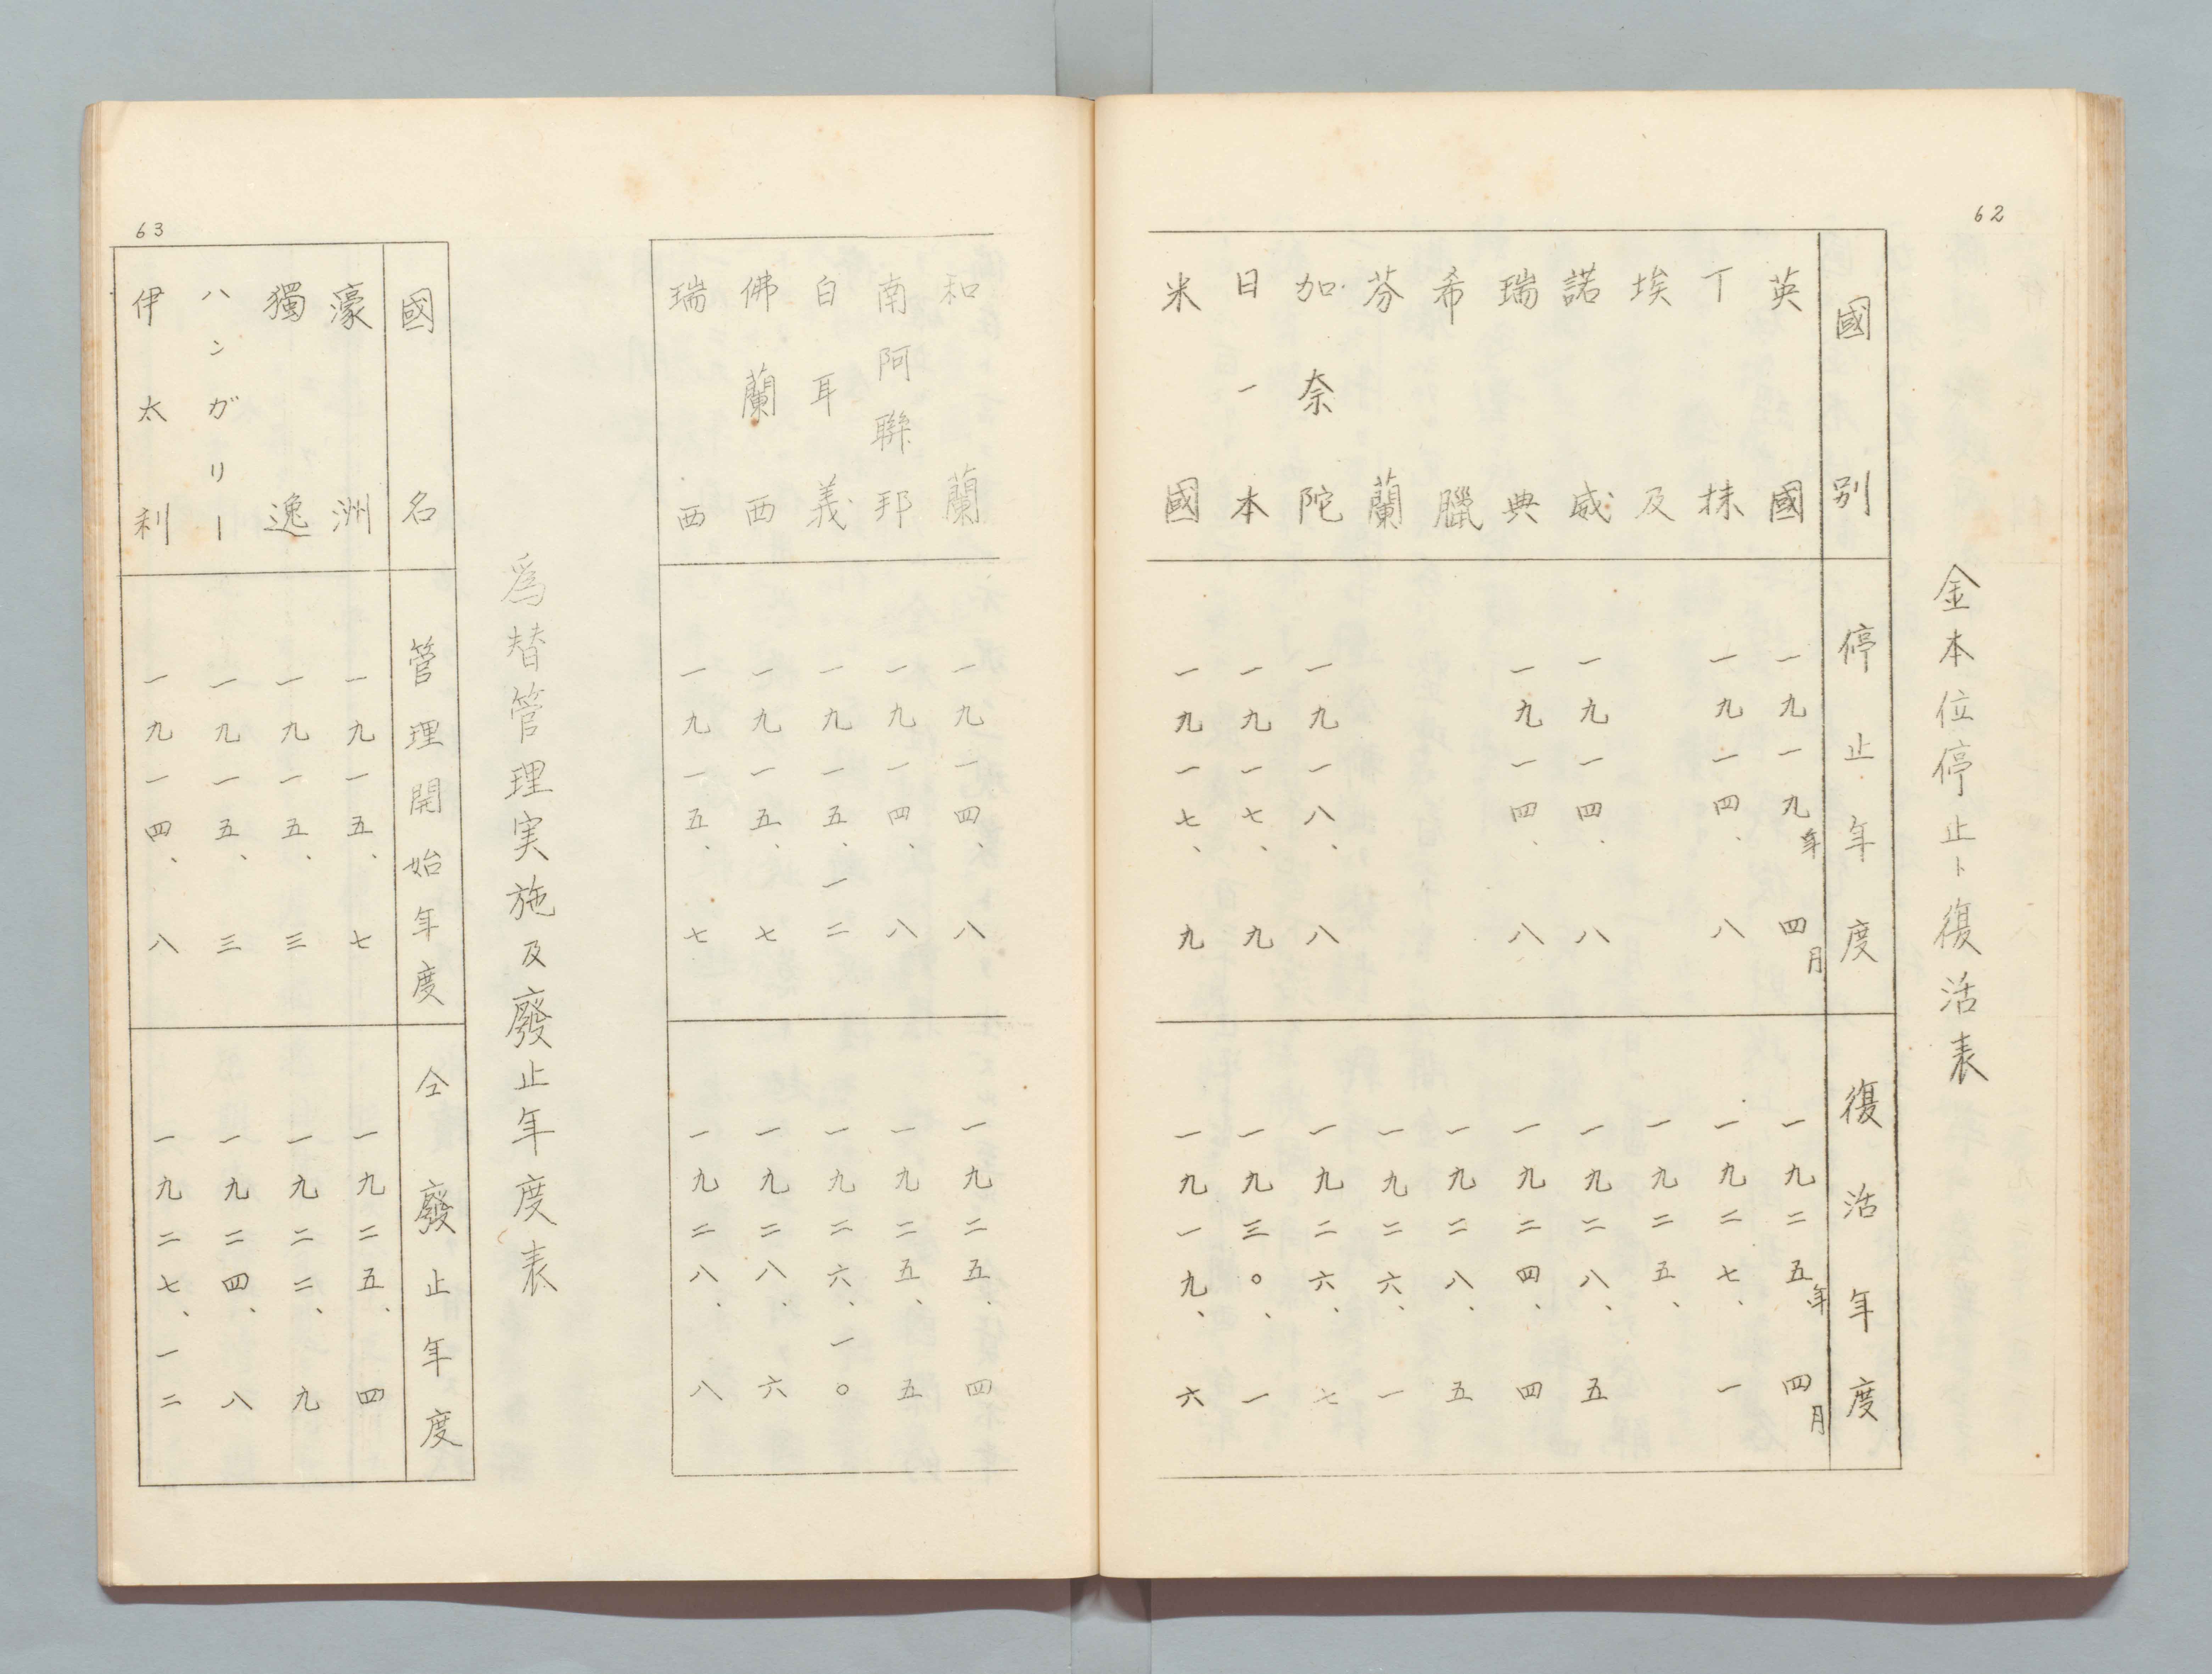 62
金本位停止ト復活表
國別 停止年度 復活年度
英國 一九一九年四月 一九二五年四月
丁抹 一九一四、八 一九二七、一
埃及 一九二五、
諾威 一九一四、八 一九二八、五
瑞典 一九一四、八 一九二四、四
希臘 一九二八、五
芬蘭 一九二六、一
加奈陀 一九一八、八 一九二六、七
日本 一九一七、九 一九三〇、一
米國 一九一七、九 一九一九、六
和蘭 一九一四、八 一九二五、四
南阿聯邦 一九一四、八 一九二五、五
白耳義 一九一五、一二 一九二六、一〇
佛蘭西 一九一五、七 一九二八、六
瑞西 一九一五、七 一九二八、八
爲替管理実施及廢止年度表
國名 管理開始年度 仝廢止年度
濠洲 一九一五、七 一九二五、四
獨逸 一九一五、三 一九二二、九
ハンガリー 一九一五、三 一九二四、八
伊太利 一九一四、八 一九二七、一二
63